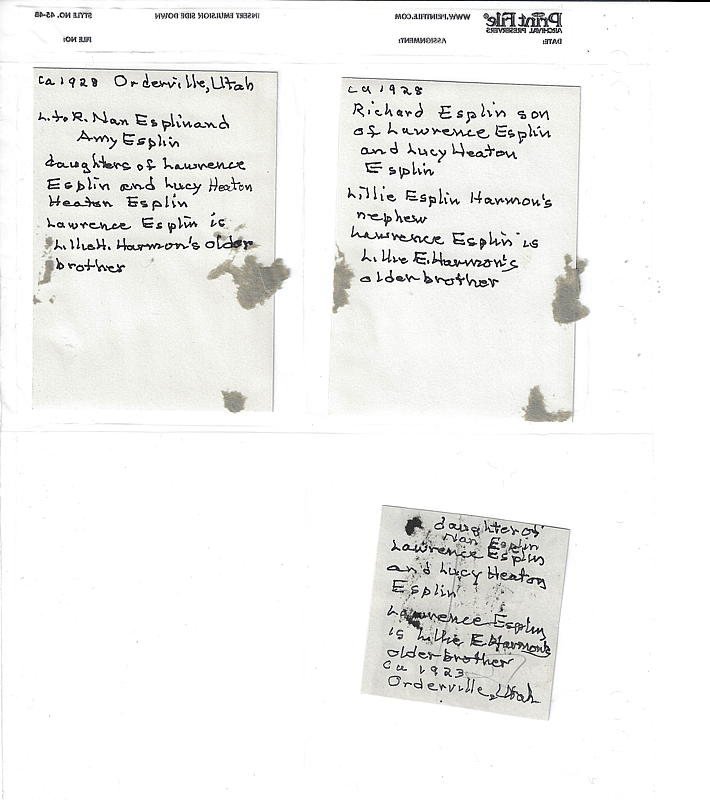 Print File®
ARCHIVAL PRESERVERS
WWW.PRINTFILE.COM
INSERT EMULSION SIDE DOWN
STYLE NO. 45-4B
DATE:
ASSIGNMENT:
FILE NO:
ca 1928 Orderville, Utah
L. to R. Nan Esplin and
Amy Esplin
daughters of Lawrence
Esplin and Lucy Heaton
Heaton Esplin
Lawrence Esplin is
Lillie H. Harmon's older
brother
ca 1928
Richard Esplin son
of Lawrence Esplin
and Lucy Heaton
Esplin
Lillie Esplin Harmon's
nephew
Lawrence Esplin is
Lillie E. Harmon's
older brother
daughter of
Nan Esplin
Lawrence Esplin
and Lucy Heaton
Esplin
Lawrence Esplin
is Lillie E. Harmon's
older brother
ca 1923
Orderville, Utah